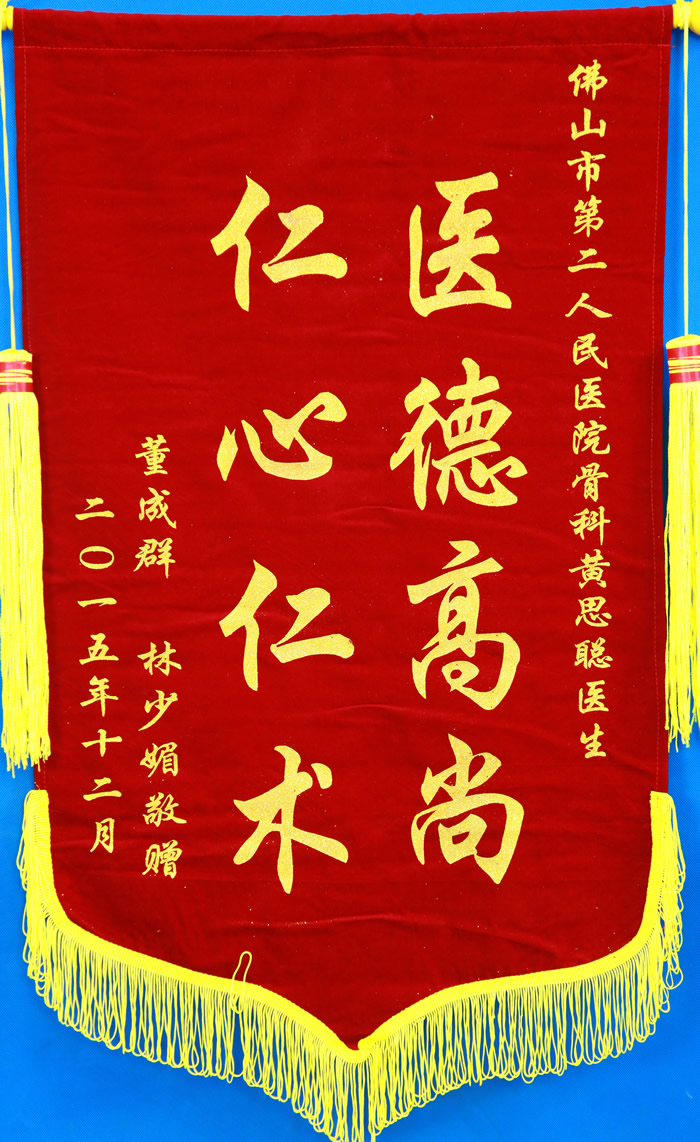 佛山市第二人民医院骨科黄思聪医生
医德高尚
仁心仁术
董成群 林少媚敬赠
二〇一五年十二月